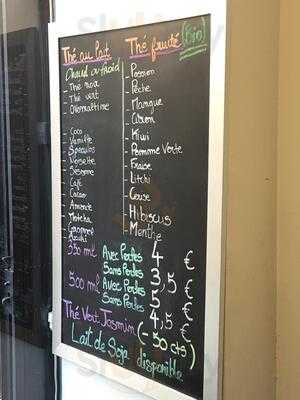 Thé au Lait
Chaud ou froid
- Thé noir
- Thé vert
- Ovomaltine
- Coco
- Vanille
- Speculos
- Noisette
- Sesame
- Café
- Cacao
- Amande
- Matcha
Thé fruité (Bio)
- Passion
- Pêche
- Mangue
- Citron
- Kiwi
- Pomme Verte
- Fraise
- Litchi
- Cerise
- Hibiscus
- Menthe
350 ml Avec Perles 4 €
Sans Perles 3,5 €
500 ml Avec Perles 5 €
Sans Perles 4,5 €
Thé Vert Jasmin (- 50 cts)
Lait de Soja disponible